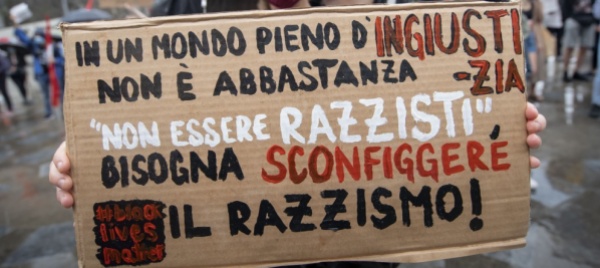 IN UN MONDO PIENO D'INGIUSTI
NON È ABBASTANZA -ZIA
"NON ESSERE RAZZISTI"
BISOGNA SCONFIGGERE
IL RAZZISMO!
#black
lives
matter